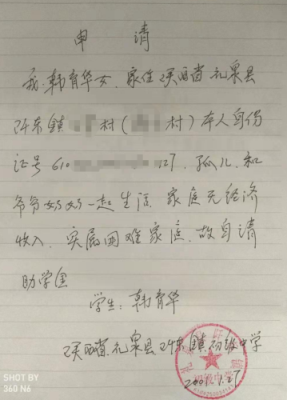 申 请
我,韩育华女,家住陕西省礼泉县
阡东镇 村( 村)本人身份
证号610 127,孤儿,和
爷爷奶奶一起生活 家庭无经济
收入,实属困难家庭,故申请
助学金
学生:韩育华
陕西省礼泉县阡东镇初级中学
SHOT BY
360 N6